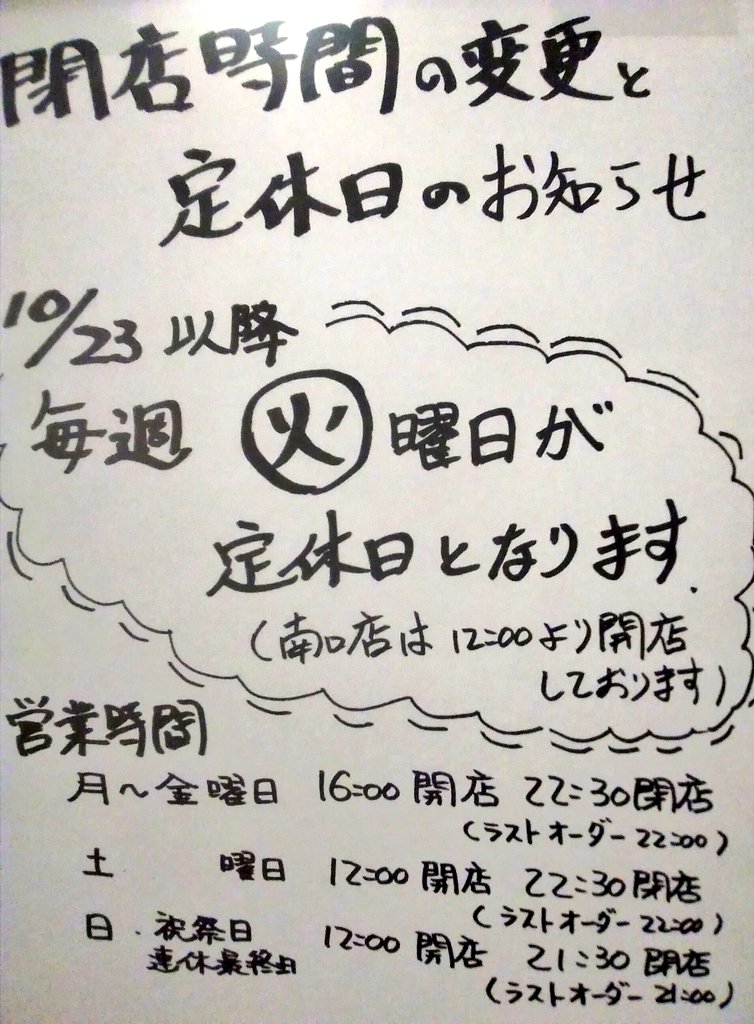 閉店時間の変更と
定休日のお知らせ
10/23 以降
毎週 火曜日が
定休日となります.
(南口店は 12:00より開店
しております)
営業時間
月〜金曜日 16:00 開店 22:30 閉店
(ラストオーダー 22:00)
土 曜日 12:00 開店 22:30 閉店
(ラストオーダー 22:00)
日・祝祭日 12:00 開店 21:30 閉店
連休最終日
(ラストオーダー 21:00)